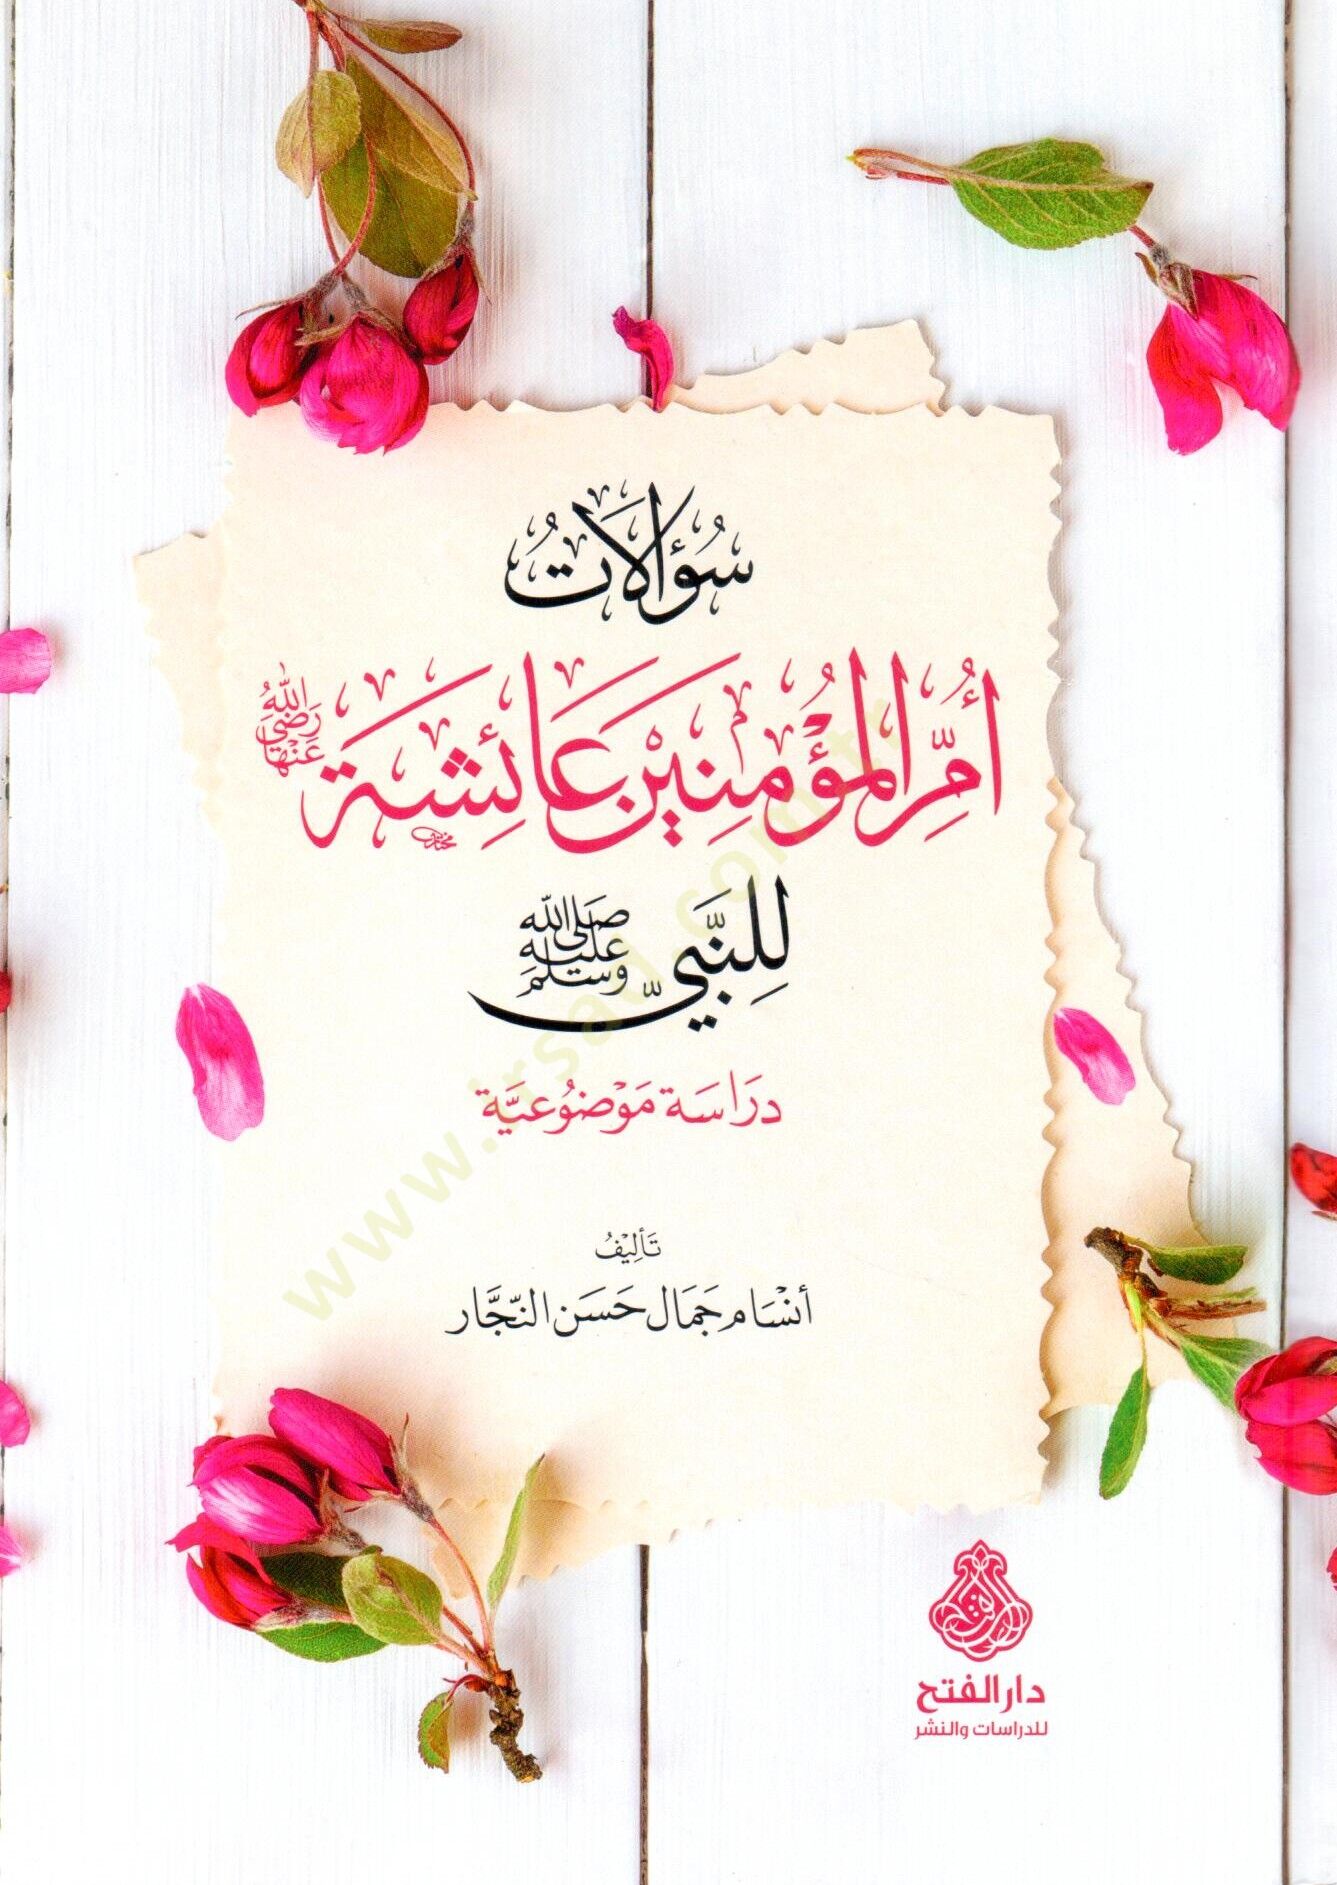 سُؤَالَاتُ
أُمِّ الْمُؤْمِنِيْنَ عَائِشَةَ رَضِيَ اللهُ عَنْهَا
مختار
لِلنَّبِيِّ صَلَّى اللهُ عَلَيْهِ وَسَلَّمَ
دِرَاسَة مَوْضُوعِيَّة
تَأْلِيْفُ
أنْسَام جَمَال حَسَن النَّجَّار
www.irsad.com.tr
الفتح
دار الفتح
للدراسات والنشر